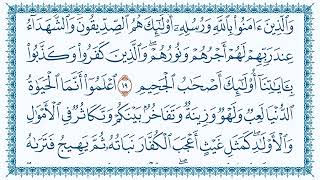 وَٱلَّذِينَ ءَامَنُوا۟ بِٱللَّهِ وَرُسُلِهِۦٓ أُو۟لَـٰٓئِكَ هُمُ ٱلصِّدِّيقُونَ وَٱلشُّهَدَآءُ
عِندَ رَبِّهِمْ لَهُمْ أَجْرُهُمْ وَنُورُهُمْ وَٱلَّذِينَ كَفَرُوا۟ وَكَذَّبُوا۟
بِـَٔايَـٰتِنَآ أُو۟لَـٰٓئِكَ أَصْحَـٰبُ ٱلْجَحِيمِ ١٩ ٱعْلَمُوٓا۟ أَنَّمَا ٱلْحَيَوٰةُ
ٱلدُّنْيَا لَعِبٌ وَلَهْوٌ وَزِينَةٌ وَتَفَاخُرٌۢ بَيْنَكُمْ وَتَكَاثُرٌ فِى ٱلْأَمْوَٰلِ
وَٱلْأَوْلَـٰدِ كَمَثَلِ غَيْثٍ أَعْجَبَ ٱلْكُفَّارَ نَبَاتُهُۥ ثُمَّ يَهِيجُ فَتَرَىٰهُ